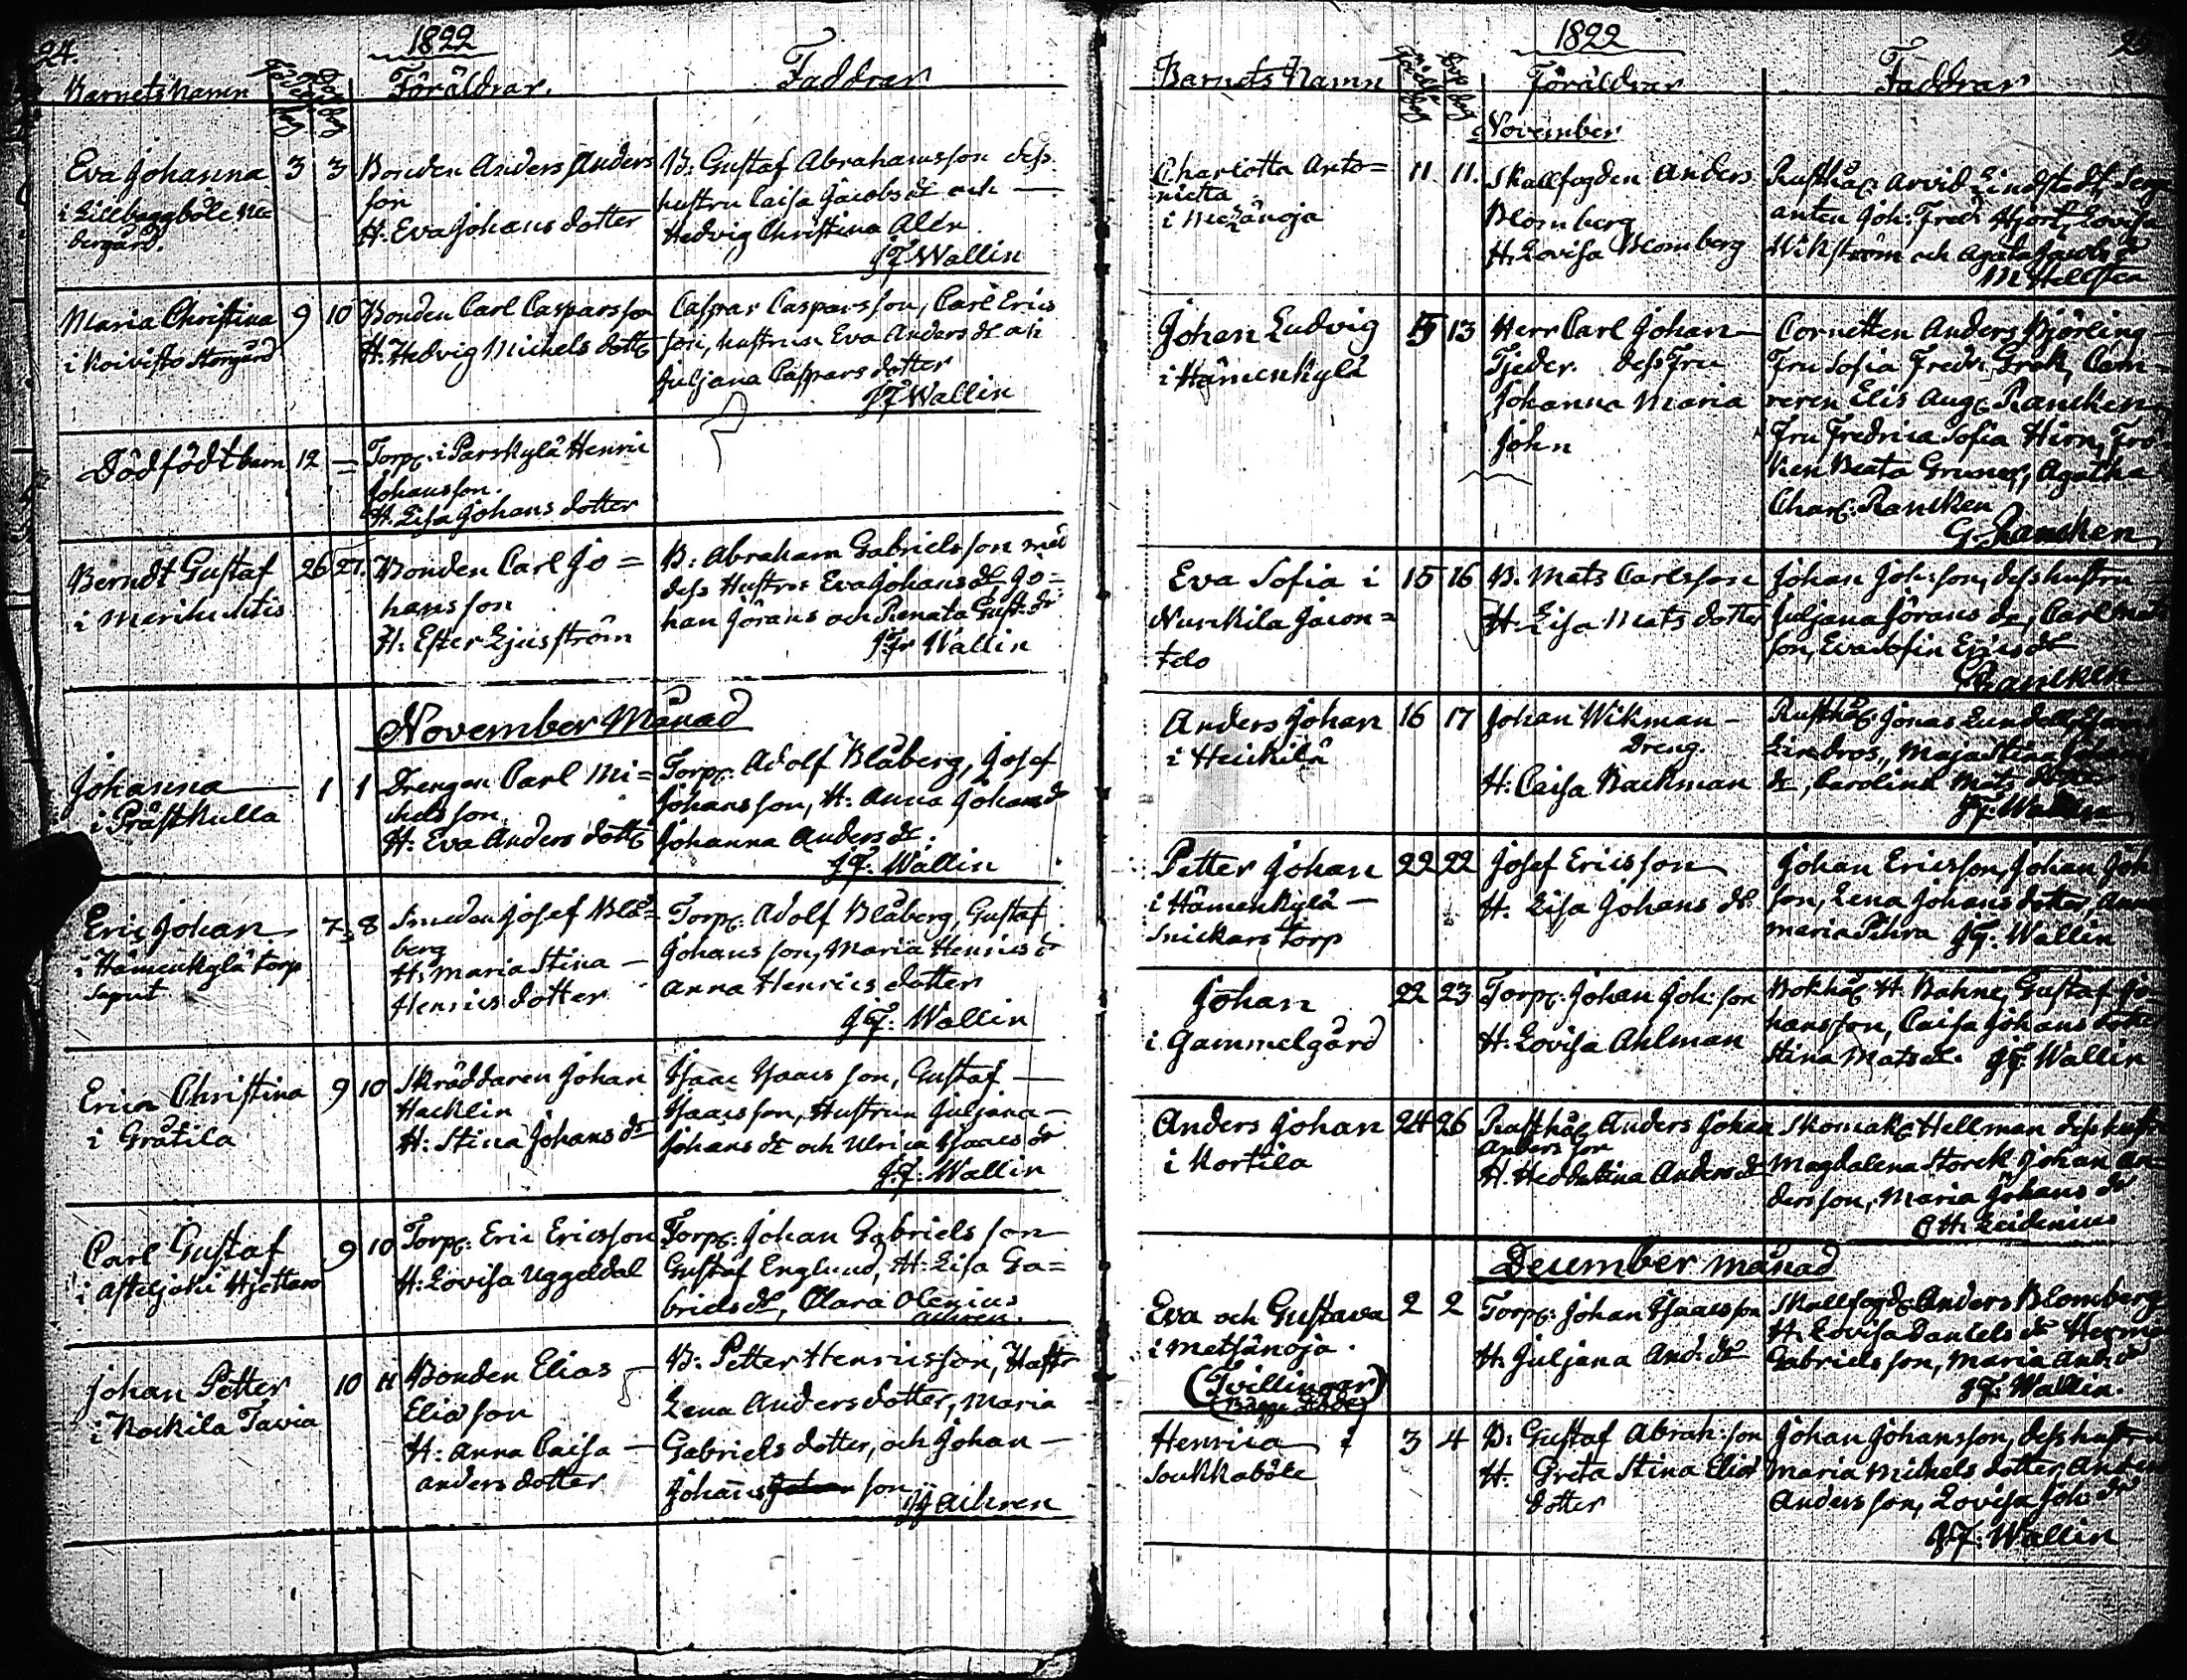 24.
1822
Barnets Namn
Födelse dag
Dop dag
Föräldrar.
Faddrar
Eva Johanna
i Lillbaggböle Ne
dergård.
3
3
Bonden Anders Anders
son
H: Eva Johans dotter
B: Gustaf Abrahamsson dess
hustru Caisa Jacobs dr och
Hedvig Christina Alén
JF Wallin
Maria Christina
i Koivisto Storgård
9
10
Bonden Carl Caspars son
H: Hedvig Michels dottr
Caspar Caspars son, Carl Erics
son, hustrun Eva Anders dr och
Juljana Caspars dotter
JF Wallin
Dödfödt barn
12
=
Torp: i Parskylä Henric
Johansson.
H. Lisa Johans dotter
Berndt Gustaf
i Merihuhtis
26
27.
Bonden Carl Jo=
hans son
H: Ester Ljusström
B: Abraham Gabriels son med
dess Hustru Eva Johans dr Jo=
han Jörans och Renata Gust: dr
J:Fr Wallin
November Månad
Johanna
i Prästkulla
1
1
Drengen Carl Mi=
chels son
H: Eva Anders dottr
Torp: Adolf Blåberg, Josef
Johans son, H: Anna Johans dr
Johanna Anders dr:
JF: Wallin
Eric Johan
i Hämenkylä torp
Saput
7
8
Smeden Josef Blå=
berg
H: Maria Stina
Henrics dotter
Torp: Adolf Blåberg, Gustaf
Johans son, Maria Henrics dr
Anna Henrics dotter
JF: Wallin
Erica Christina
i Gråtila
9
10
Skräddaren Johan
Hacklin
H: Stina Johans dr
Isaac Isaacs son, Gustaf
Isaacsson, Hustrun Juljana
Johans dr och Ulrica Isaacs dr
J.F. Wallin
Carl Gustaf
i Asteljoki Hjettans
9
10
Torp: Eric Ericsson
H: Lovisa Uggeldal
Torp: Johan Gabriels son
Gustaf Englund, H: Lisa Ga=
briels dr, Clara Olenius
Aihren.
Johan Petter
i Kockila Tavia
10
11
Bonden Elias
Elias son
H: Anna Caisa
Anders dotter
B: Petter Henricsson, Hustr
Lena Anders dotter, Maria
Gabriels dotter, och Johan
Johans son
JJ Aihren
1822
Barnets Namn
Födelse dag
Dop dag
Föräldrar
Faddrar
November
Charlotta Anto=
nietta
i Metsänoja
11
11.
Skallfogden Anders
Blomberg
H. Lovisa Blomberg
Rusthår Arvid Lindstedt Serg
anten Joh: Fred: Hjort, Lovisa
Wikström och Agata Jacobs dr
M Hellsten
Johan Ludvig
i Hämenkylä
13
Herr Carl Johan
Tjeder. dess Fru
Johanna Maria
John
Cornetten Anders Björling
Fru Sofia Fredr: Grek, Cam
reren Elis Aug: Rancken
Fru Fredrica Sofia Hirn, Frö
ken Beata Gruner, Agatha
Char: Rancken
G. Rancken
Eva Sofia i
Nunkila Jacon=
telo
15
16
B. Mats Carlsson
H. Lisa Mats dotter
Johan Joh: son, dess hustru
Juljana Jörans dr, Carl Mat
son, Eva Sofia Erics dr
Rancken
Anders Johan
i Heickilä
16
17
Johan Wikman
Dreng.
H: Caisa Backman
Rusthår Jonas Lundell
Lindros, Maja Stina Johans
dr, Carolina Mats dotter
JF: Wallin
Petter Johan
i Hämenkylä
Snickars torp
22
22
Josef Ericsson
H: Lisa Johans dr.
Johan Ericsson, Johan Joh
son, Lena Johans dotter, Anna
Maria Pihra JF: Wallin
Johan
i Gammelgård
22
23
Torp: Johan Joh: son
H: Lovisa Ahlman
Bokhår H Bahne, Gustaf Jo
hansson, Caisa Johans dotter
Stina Mats dr. JF: Wallin
Anders Johan
i Kortila
24
26
Rusthår Anders Johan
Anders son
H. Hedda Stina Anders dr
Skomakr Hellman dess hustr
Magdalena Storck, Johan An=
ders son, Maria Johans dr
O H: Leidenius
December månad
Eva och Gustava
i Metsänoja.
(Tvillingar)
(Bägge döde)
2
2
Torp: Johan Isaacs son
H. Juljana And: dr
Skallfogd: Anders Blomberg
H. Lovisa Daniels dr Herman
Gabriels son, Maria And: dr
JF: Wallin.
Henrica i
Soukkaböle
3
4
B: Gustaf Abrah: son
H. Greta Stina Elias
dotter
Johan Johansson, dess hustru
Maria Michels dotter, Anders
Anders son, Lovisa Joh: dr
JF: Wallin